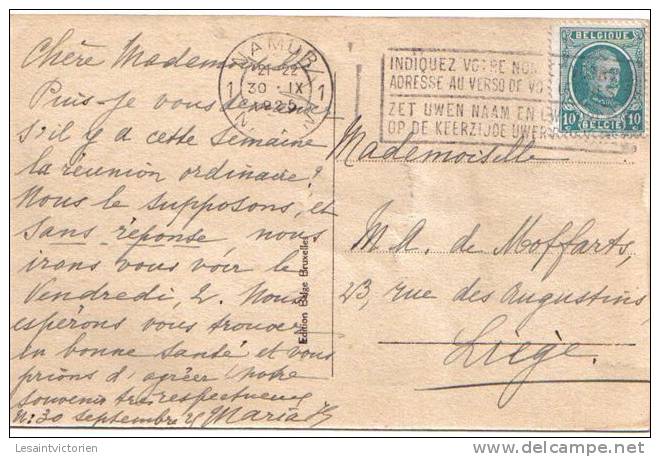 Chère Mademoiselle
Puis-je vous demander
s'il y a cette semaine
la réunion ordinaire?
Nous le supposons, et
sans réponse, nous
irons vous voir le
Vendredi, 2. Nous
espérons vous trouver
en bonne santé et vous
prions d'agréer notre
souvenir très respectueux
N: 30 septembre 25 Maria
NAMUR
21-22
1 30 IX 1
1925
NAMEN
INDIQUEZ VOTRE NOM
ADRESSE AU VERSO DE VO
ZET UWEN NAAM EN UW
OP DE KEERZIJDE UWER
BELGIQUE
10 BELGIË 10
Mademoiselle
M. A. de Moffarts,
23, rue des Augustins,
Liège.
Edition Belge Bruxelles
Lesaintvictorien
delcampe.net